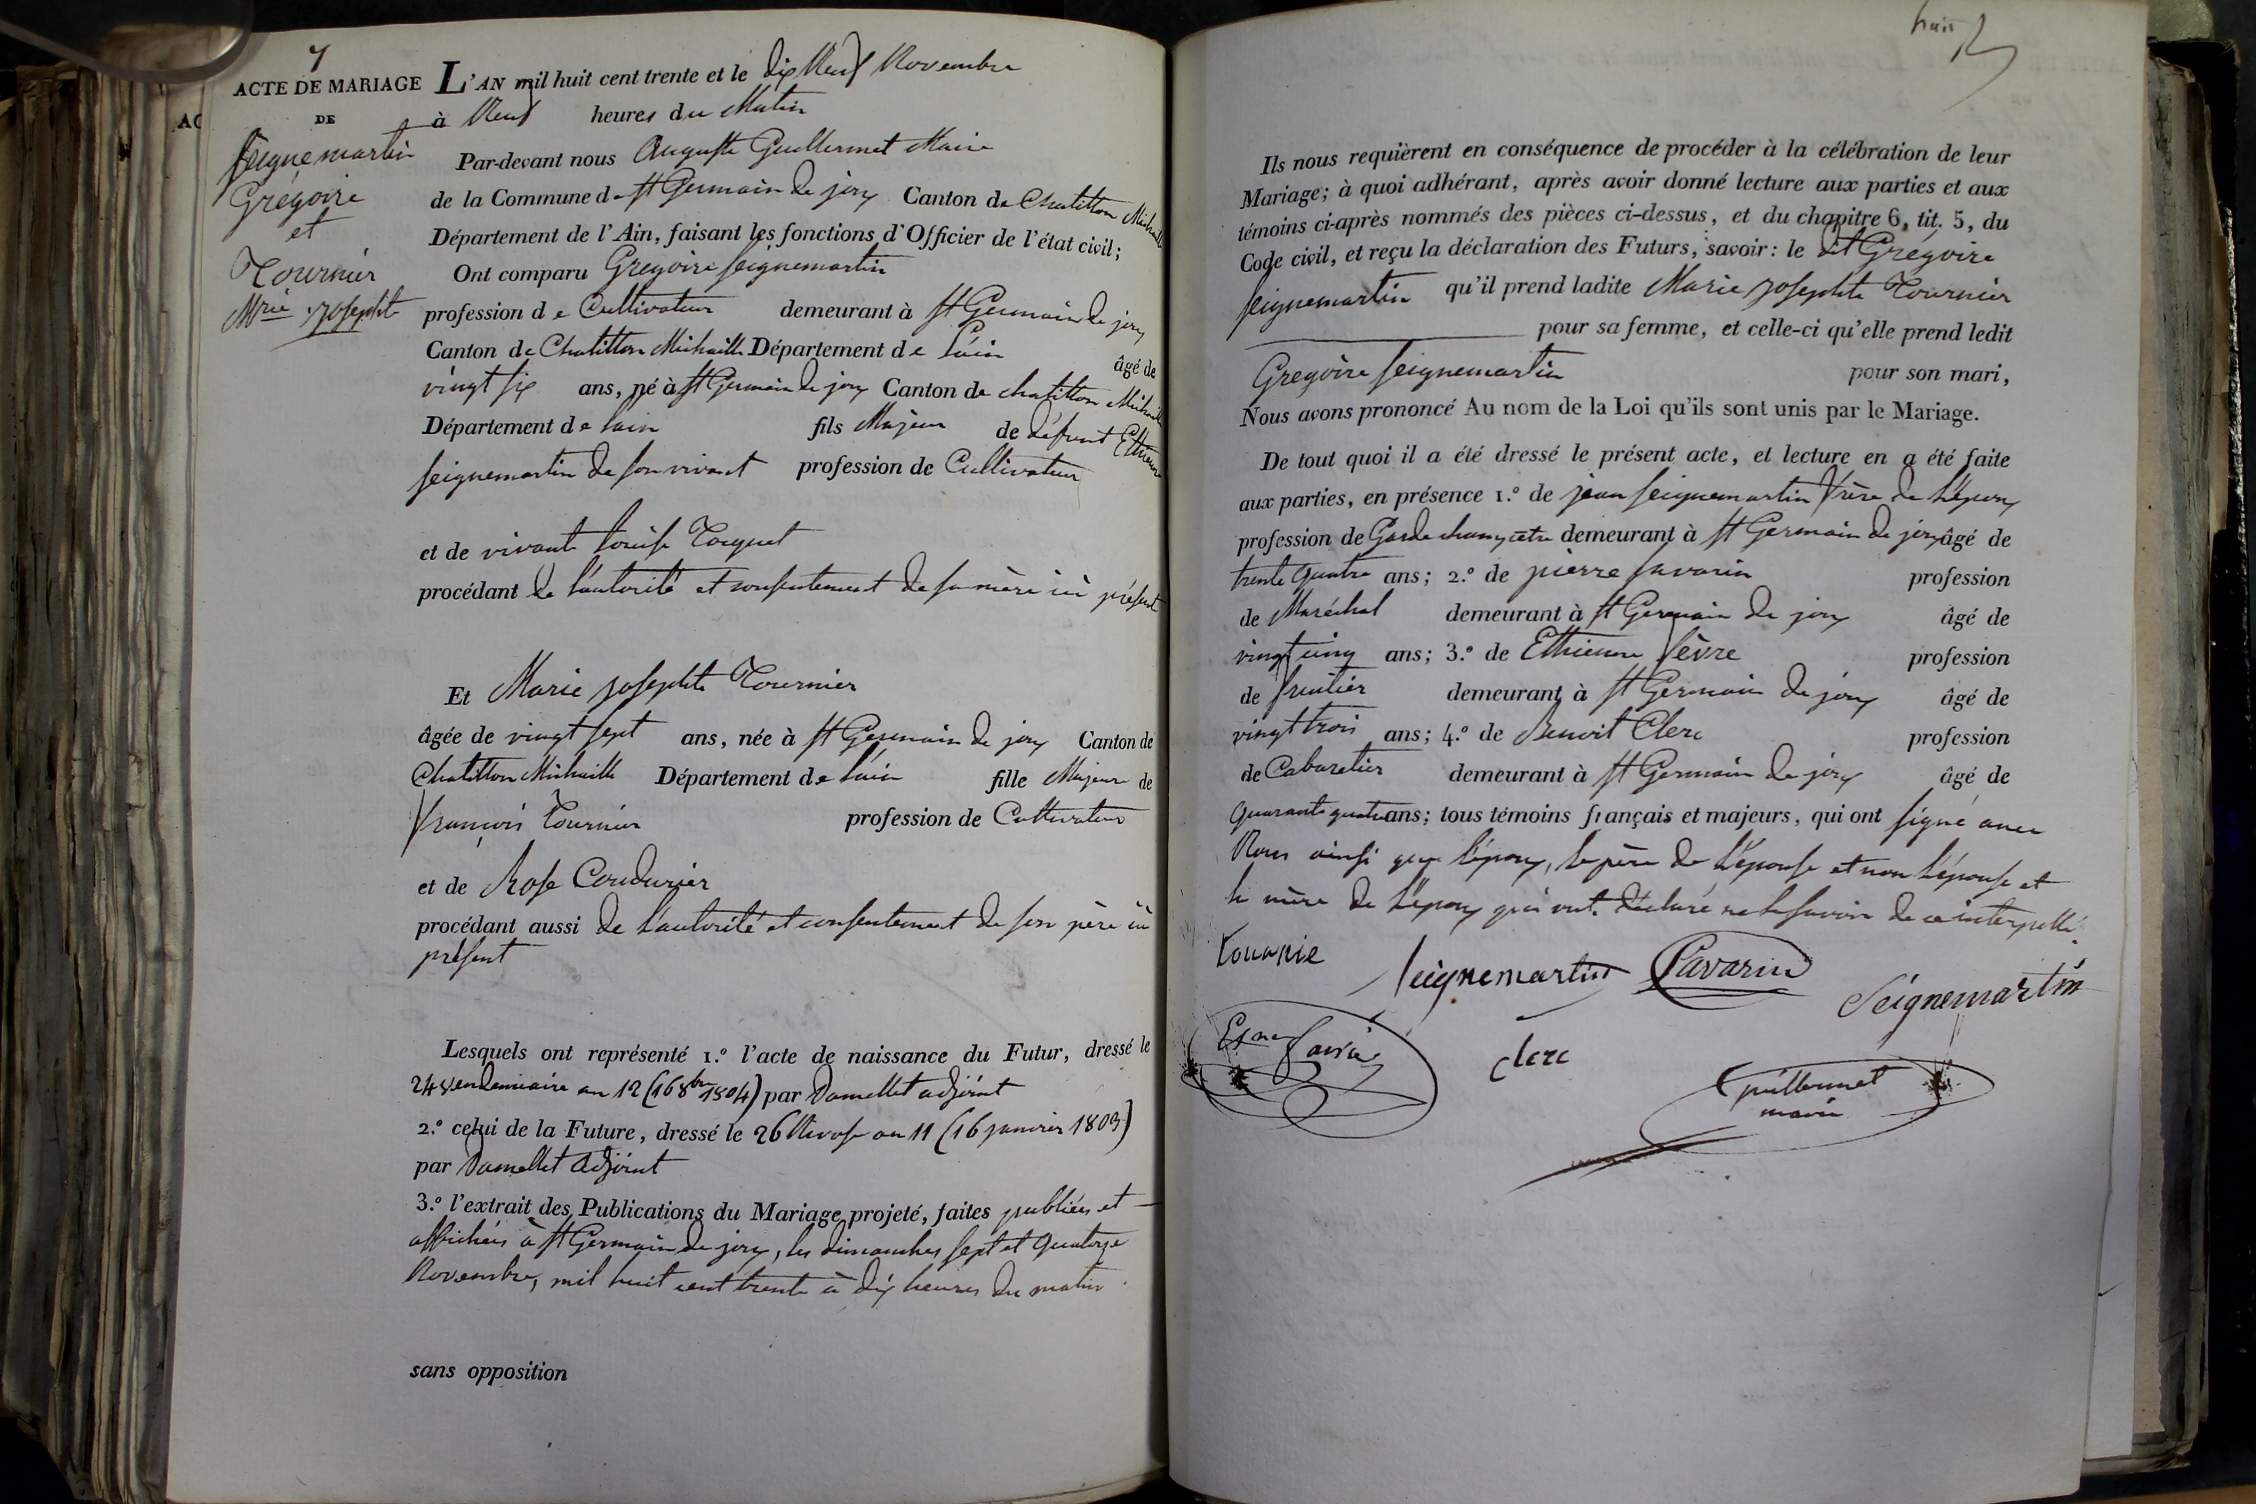 7
ACTE DE MARIAGE
DE
Seignemartin
Grégoire
et
Tournier
Mrie Josephte
L'AN mil huit cent trente et le dix Neuf Novembre
à Neuf heures du Matin
Par-devant nous Auguste Guillermet Maire
de la Commune de St Germain de joux Canton de Chatillon Michaille
Département de l'Ain, faisant les fonctions d'Officier de l'état civil;
Ont comparu Gregoire Seignemartin
profession de Cultivateur demeurant à St Germain de joux
Canton de Chatillon Michaille Département de l'ain âgé de
vingt six ans, né à St Germain de joux Canton de chatillon Michaille
Département de lain fils Majeur de défunt Ethienne
Seignemartin de son vivant profession de Cultivateur
et de vivante Louise Tocquet
procédant de l'autorité et consentement de sa mère ici présent
Et Marie Josephte Tournier
âgée de vingt sept ans, née à St Germain de joux Canton de
Chatillon Michaille Département de l'ain fille Majeure de
françois Tournier profession de Cultivateur
et de Rose Coudurier
procédant aussi de l'autorité et consentement de son père ici
présent
Lesquels ont représenté 1.º l'acte de naissance du Futur, dressé le
24 vendemiaire an 12 (16 8bre 1804) par Damellet adjoint
2.º celui de la Future, dressé le 26 Nivose an 11 (16 janvier 1803)
par Damellet adjoint
3.º l'extrait des Publications du Mariage projeté, faites publiées et
affichées à St Germain de joux, les dimanches sept et quatorze
Novembre, mil huit cent trente à dix heures du matin.
sans opposition
huit
Ils nous requièrent en conséquence de procéder à la célébration de leur
Mariage; à quoi adhérant, après avoir donné lecture aux parties et aux
témoins ci-après nommés des pièces ci-dessus, et du chapitre 6, tit. 5, du
Code civil, et reçu la déclaration des Futurs, savoir: le dit Grégoire
Seignemartin qu'il prend ladite Marie Josephte Tournier
pour sa femme, et celle-ci qu'elle prend ledit
Gregoire Seignemartin pour son mari,
Nous avons prononcé Au nom de la Loi qu'ils sont unis par le Mariage.
De tout quoi il a été dressé le présent acte, et lecture en a été faite
aux parties, en présence 1.º de jean Seignemartin frère de l'époux
profession de Garde champetre demeurant à St Germain de joux âgé de
trente quatre ans; 2.º de pierre Savarin profession
de Maréchal demeurant à St Germain de joux âgé de
vingt cinq ans; 3.º de Ethienne fèvre profession
de fruitier demeurant à St Germain de joux âgé de
vingt trois ans; 4.º de Benoit Clerc profession
de Cabaretier demeurant à St Germain de joux âgé de
quarante quatre ans; tous témoins français et majeurs, qui ont signé avec
Nous ainsi que l'époux, le père de l'épouse et non l'épouse et
la mère de l'époux qui ont déclaré ne le savoir de ce interpellé.
Seignemartin Savarin
Seignemartin
clerc
Guillermet
maire